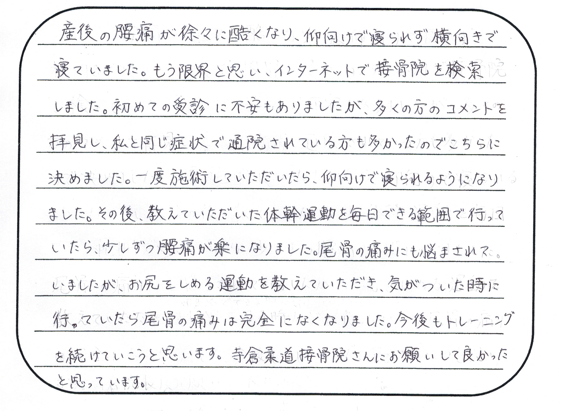 産後の腰痛が徐々に酷くなり、仰向けで寝られず横向きで
寝ていました。もう限界と思い、インターネットで接骨院を検索
しました。初めての受診に不安もありましたが、多くの方のコメントを
拝見し、私と同じ症状で通院されている方も多かったのでこちらに
決めました。一度施術していただいたら、仰向けで寝られるようになり
ました。その後、教えていただいた体幹運動を毎日できる範囲で行って
いたら、少しずつ腰痛が楽になりました。尾骨の痛みにも悩まされて
いましたが、お尻をしめる運動を教えていただき、気がついた時に
行っていたら尾骨の痛みは完全になくなりました。今後もトレーニング
を続けていこうと思います。寺倉柔道接骨院さんにお願いして良かった
と思っています。